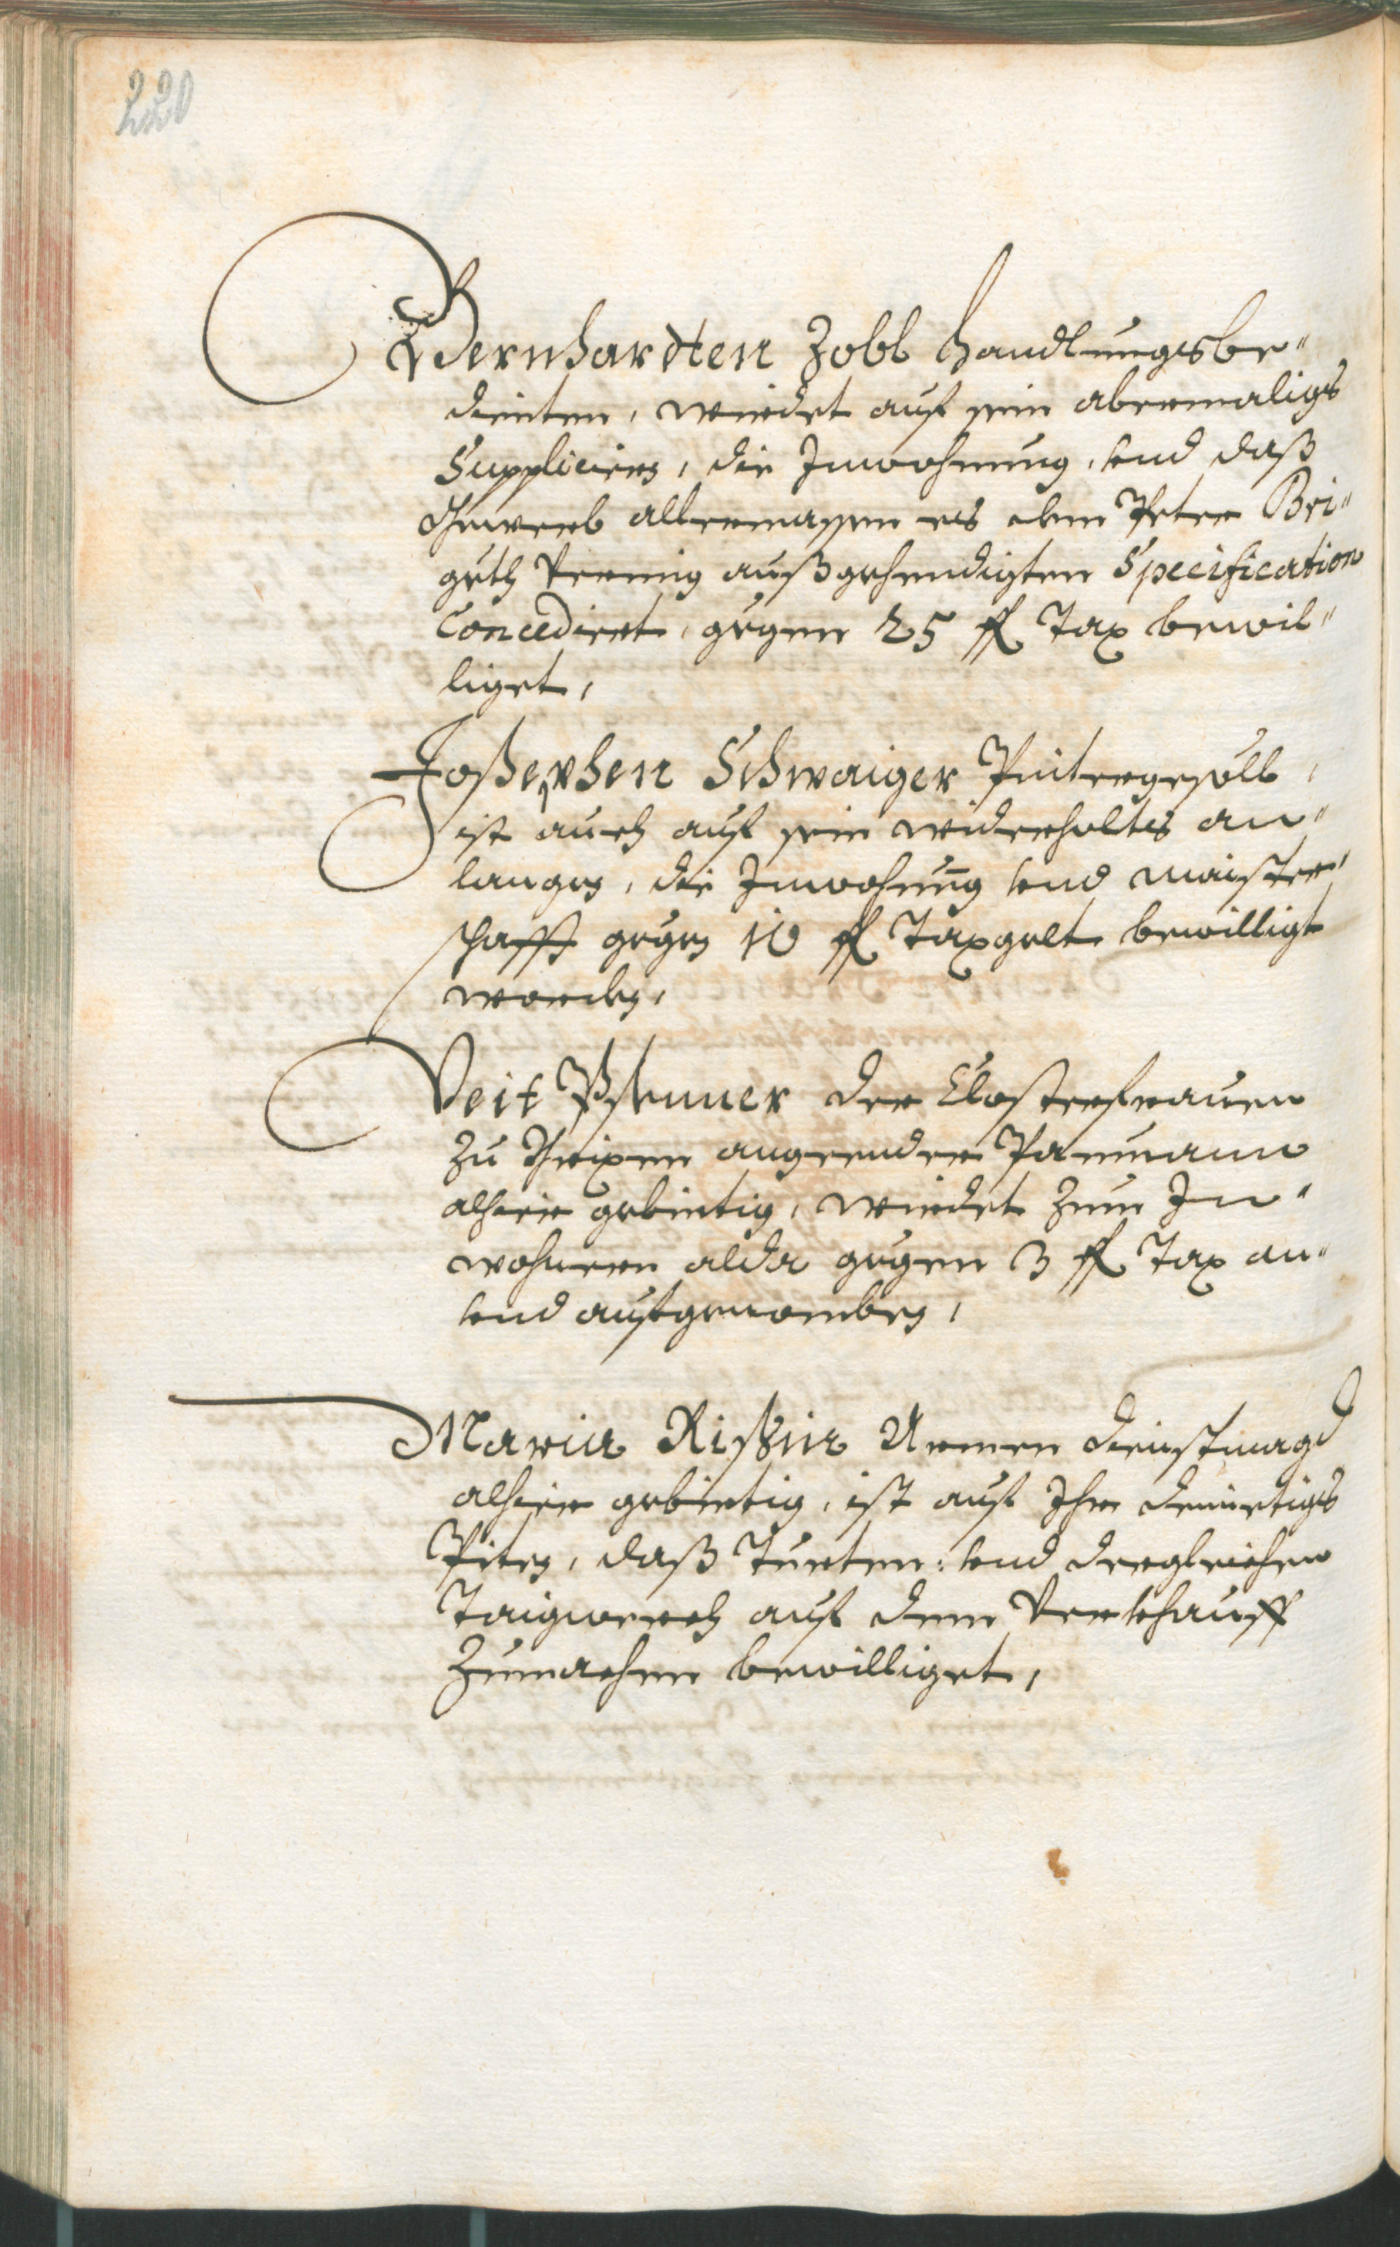 220
Bernhardten Zobl Handlungsbe¨
dienten, wirdet auf sein abermaligs
Supplicirn, die Inwohnung, und daß
Gewerb allermassen es dem Peter Bri¨
guth vermig außgehendigten Specification
Concediert, gegen 25 fl Tax bewil¨
liget,
Joßephen Schwaiger Pintergesöll,
ist auch auf sein widerholtes an¨
langen, die Inwohnung und maister¨
schafft gegen 10 fl Taxgelt bewilligt
worden,
Veit der Closterfrauen
zu Brixen angeender Paumann
alhier gebirtig, wirdet zum In¨
wohnern alda gegen 3 fl Tax an¨
und aufgenomben,
Maria Armen dienstmagd
alhier gebirtig, ist auf Ihr demietigs
Piten, daß Turten: und dergleichen
Taigwerch auf dem Verkhauff
Zumachen bewilliget,